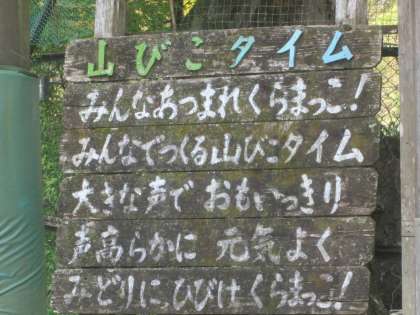 山びこタイム
みんなあつまれくらまっこ!
みんなでつくる山びこタイム
大きな声で おもいっきり
声高らかに 元気よく
みどりにひびけくらまっこ!